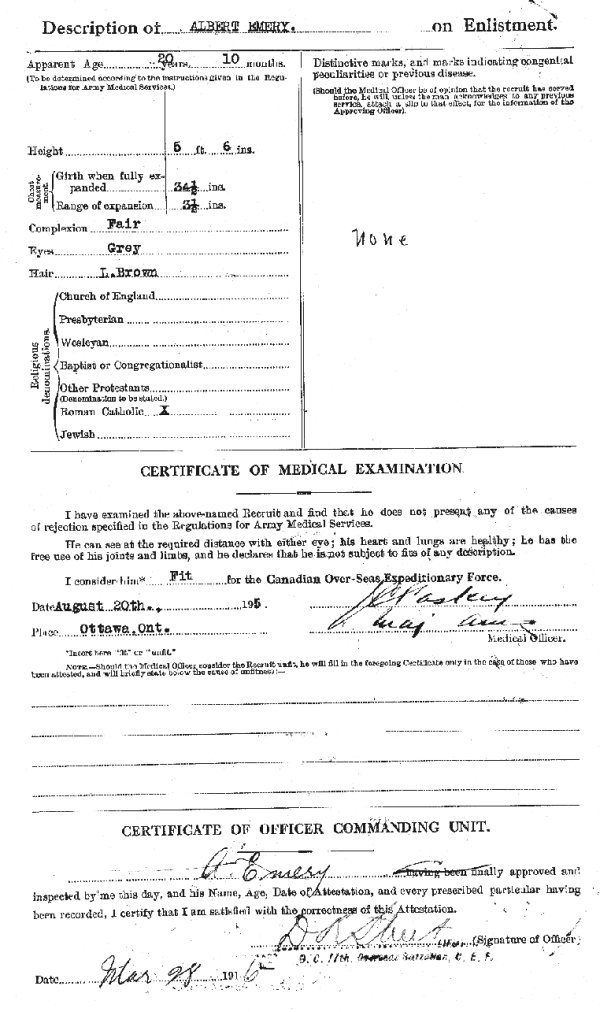 Description of ALBERT EMERY. on Enlistment.
Apparent Age 20 years. 10 months.
(To be determined according to the instructions given in the Regulations for Army Medical Services.)
Height 5 ft. 6 ins.
Chest measurement.
Girth when fully expanded 34½ ins.
Range of expansion 3½ ins.
Complexion Fair
Eyes Grey
Hair L.Brown
Religious denominations.
Church of England
Presbyterian
Wesleyan
Baptist or Congregationalist
Other Protestants
(Denomination to be stated.)
Roman Catholic X
Jewish
Distinctive marks, and marks indicating congenital
peculiarities or previous disease.
(Should the Medical Officer be of opinion that the recruit has served
before, he will, unless the man acknowledges to any previous
service, attach a slip to that effect, for the information of the
Approving Officer).
None
CERTIFICATE OF MEDICAL EXAMINATION
I have examined the above-named Recruit and find that he does not present any of the causes
of rejection specified in the Regulations for Army Medical Services.
He can see at the required distance with either eye; his heart and lungs are healthy; he has the
free use of his joints and limbs, and he declares that he is not subject to fits of any description.
I consider him* Fit for the Canadian Over-Seas Expeditionary Force.
Date August 20th., 195
Place Ottawa,Ont.
Maj
Medical Officer.
*Insert here "fit" or "unfit."
NOTE.—Should the Medical Officer consider the Recruit unfit, he will fill in the foregoing Certificate only in the case of those who have
been attested, and will briefly state below the cause of unfitness:—
CERTIFICATE OF OFFICER COMMANDING UNIT.
A Emery having been finally approved and
inspected by me this day, and his Name, Age, Date of Attestation, and every prescribed particular having
been recorded, I certify that I am satisfied with the correctness of this Attestation.
(Signature of Officer)
O.C. 77th, Overseas Battalion, C. E. F.
Date Mar 28 1916